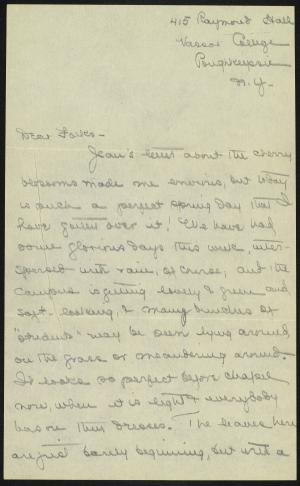 415 Raymond Hall
Vassar College
Poughkeepsie
N.Y-
Dear Folks-
Jean's letter about the cherry
blossoms made me envious, but today
is such a perfect spring day that I
have gotten over it! We have had
some glorious days this week, inter-
spersed with rain, of course, but the
campus is getting lovely & green and
soft-looking, & many bunches of
"students" may be seen lying around
on the grass or meandering around.
It looks so perfect before chapel
now, when it is light & everybody
has on thin dresses. The leaves here
are just barely beginning, but with a